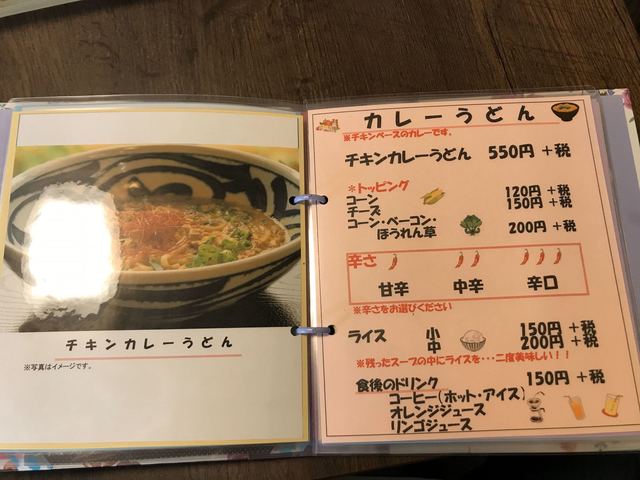 チキンカレーうどん
※写真はイメージです。
カレーうどん
※チキンベースのカレーです。
チキンカレーうどん 550円 +税
*トッピング
コーン 120円 +税
チーズ 150円 +税
コーン・ベーコン・
ほうれん草 200円 +税
辛さ
甘辛 中辛 辛口
※辛さをお選びください
ライス 小 150円 +税
中 200円 +税
※残ったスープの中にライスを・・・二度美味しい!!
食後のドリンク 150円 +税
コーヒー(ホット・アイス)
オレンジジュース
リンゴジュース